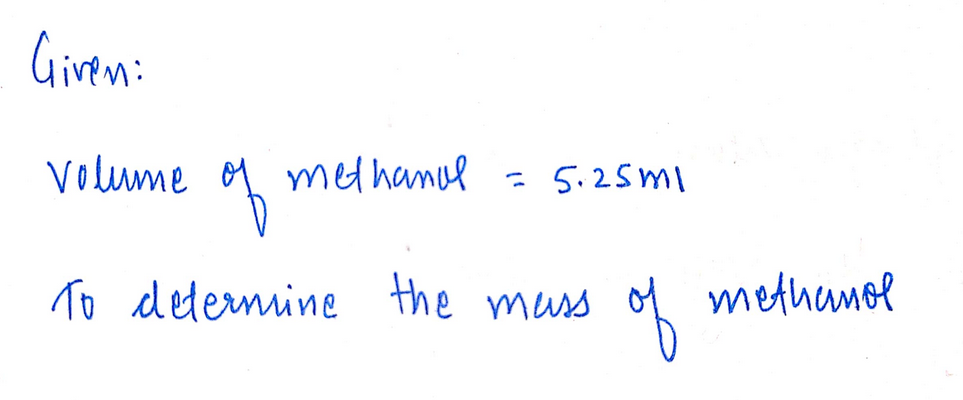 Given:
Volume of methanol = 5.25ml
To determine the mass of methanol